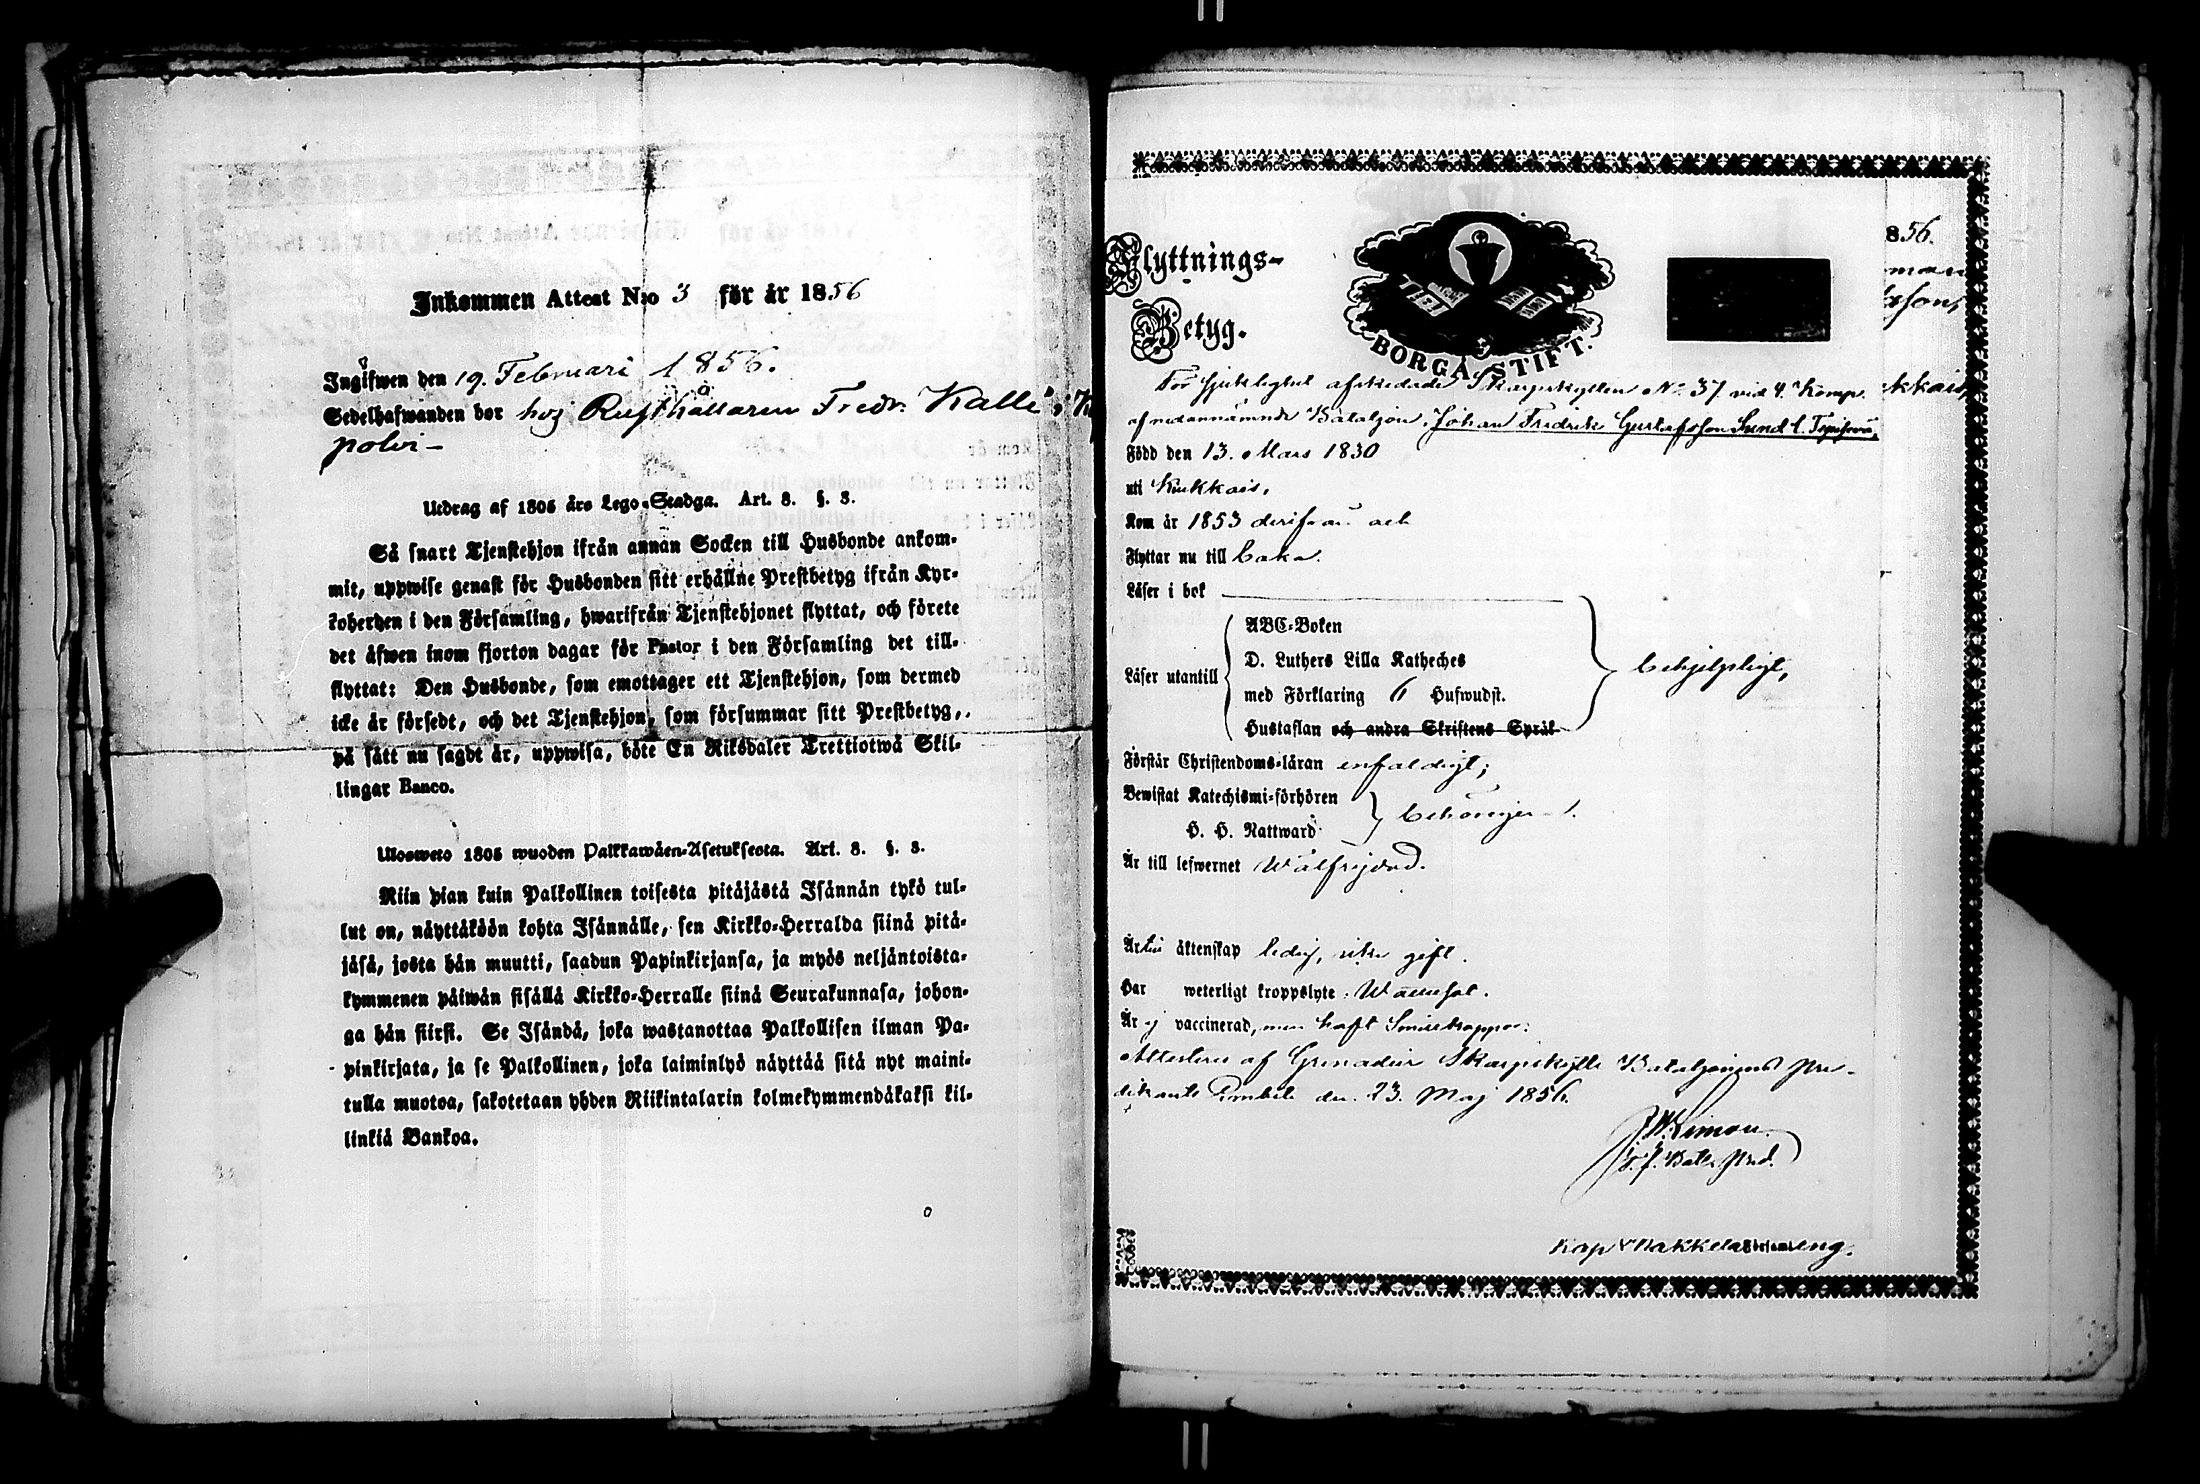 Inkommen Attest N:o 3 för år 1856
Ingifwen den 19. Februari 1856.
Sedelhafwanden bor hoj Rusthållaren Fredr. Kalle, K
polvi –
Utdrag af 1805 års Lego-Stadga. Art. 3. §. 3.
Så snart Tjenstehjon ifrån annan Socken till Husbonde ankom-
mit, uppwise genast för Husbonden sitt erhållne Prestbetyg ifrån Kyr-
koherden i den Församling, hwarifrån Tjenstehjonet flyttat, och förete
det äfwen inom fjorton dagar för Pastor i den Församling det till-
flyttat: Den Husbonde, som emottager ett Tjenstehjon, som dermed
icke är försedt, och det Tjenstehjon, som försummar sitt Prestbetyg,
på sätt nu sagdt är, uppwisa, böte En Riksdaler Trettiotwå Skil-
lingar Banco.
Ulosweto 1805 wuoden Palkkawäen-Asetuksesta. Art. 3. §. 3.
Niin pian kuin Palkollinen toisesta pitäjästä Isännän tykö tul-
lut on, näyttäköön kohta Isännälle, sen Kirkko-Herralda siinä pitä-
jäsä, josta hän muutti, saadun Papinkirjansa, ja myös neljäntoista-
kymmenen päiwän sisällä Kirkko-Herralle siinä Seurakunnasa, johon-
ga hän siirsi. Se Isändä, joka wastanottaa Palkollisen ilman Pa-
pinkirjata, ja se Palkollinen, joka laiminlyö näyttää sitä nyt maini-
tulla muotoa, sakotetaan yhden Riikintalarin kolmekymmendäkaksi kil-
linkiä Bankoa.
Flyttnings-
Betyg.
BORGÅ STIFT.
856.
man
son,
kkais,
För sjuklighet afskedade Skarpskytten No 37 vid 4. Komp.
af nedannämnde Bataljon, Johan Fredrik Gustafsson Sund
Född den 13. Mars 1830
uti Kukkais,
Kom år 1853 derifrån och
Flyttar nu till
Läser i bok
Läser utantill
ABC-Boken
D. Luthers Lilla Katheches
med Förklaring 6 Hufwudst.
Hustaflan och andra Skriftens Språk
behjelpligt,
Förstår Christendoms-läran enfaldigt;
Bewistat Katechismi-förhören
H. H. Nattward
Är till lefwernet Wälfrejdad.
Är till äktenskap ledig, icke gift.
Har weterligt kroppslyte:
Är ej vaccinerad, men haft Smittkoppor:
Attesteras af Grenadier Skarpskytte Bataljonens Pre-
dikants Embete den 23. Maj 1856.